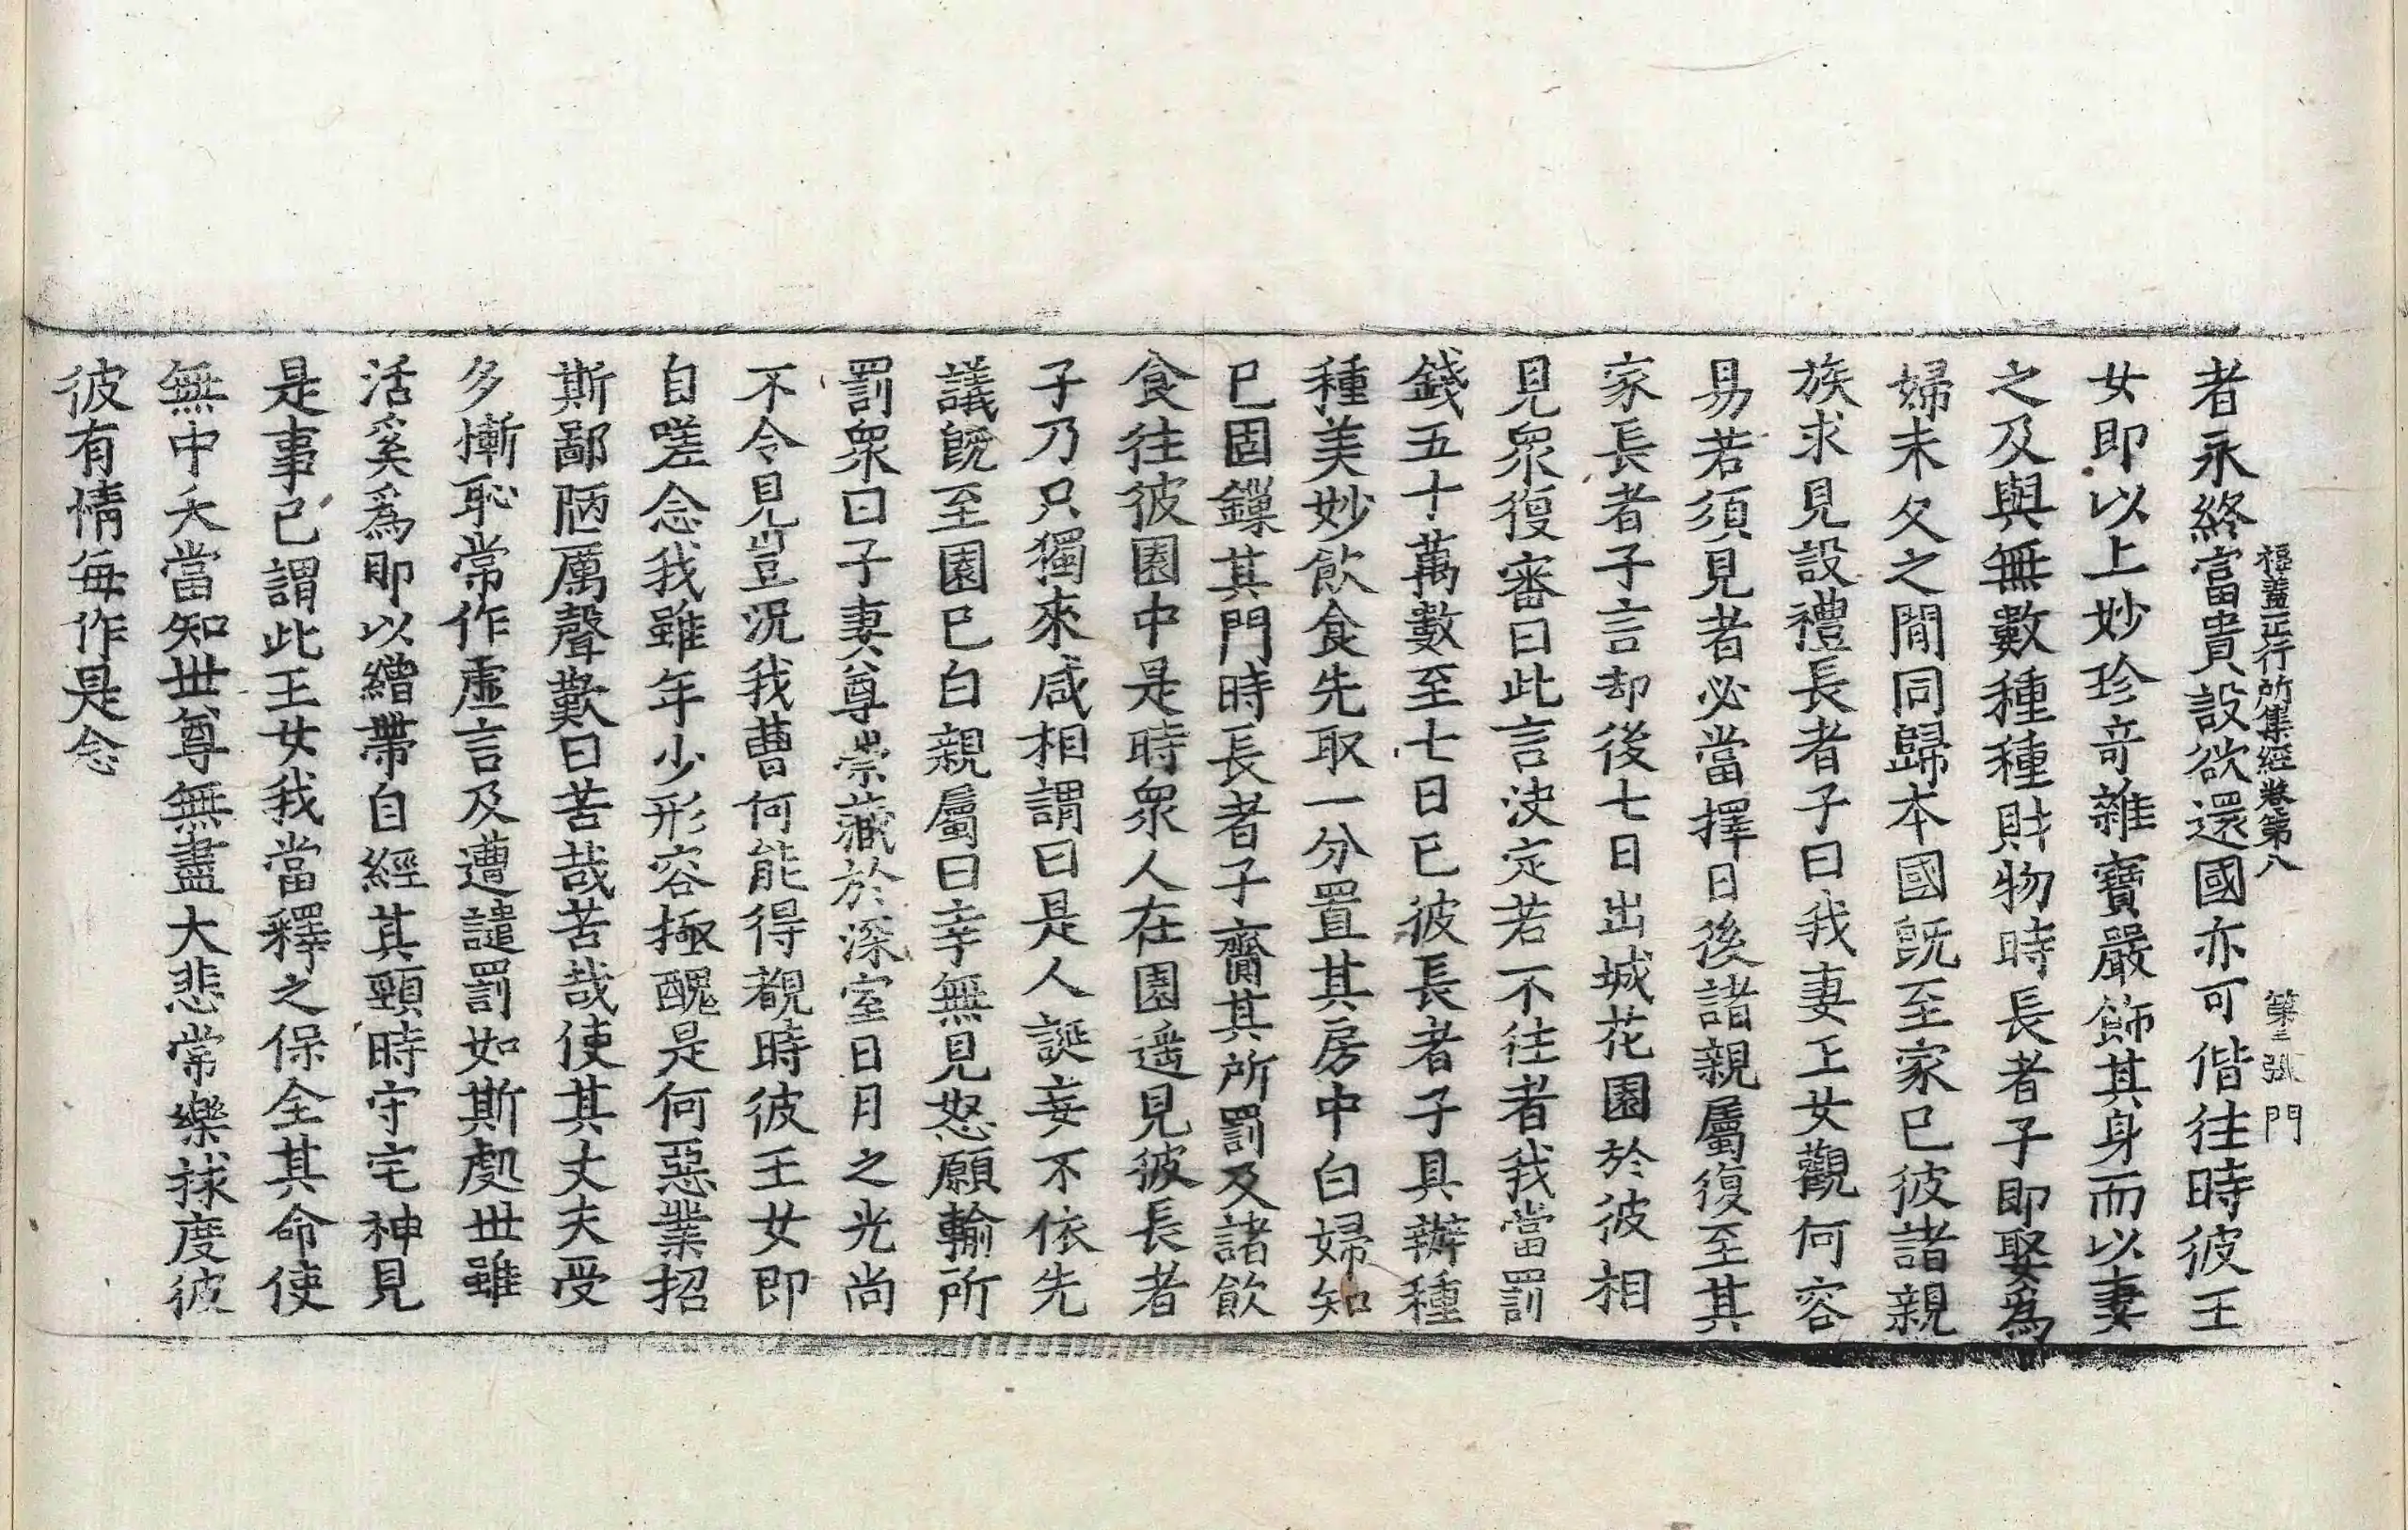 福蓋正行所集經卷第八 第三張 門
者永終富貴設欲還國亦可偕往時彼王
女即以上妙珍竒雜寶嚴飾其身而以妻
之及與無數種種財物時長者子即娶爲
婦未久之閒同歸本國旣至家已彼諸親
族求見設禮長者子曰我妻王女觀何容
易若須見者必當擇日後諸親屬復至其
家長者子言却後七日出城花園於彼相
見衆復審曰此言決定若不往者我當罰
錢五十萬數至七日已彼長者子具辦種
種美妙飲食先取一分置其房中白婦知
已固鏁其門時長者子齎其所罰及諸飲
食往彼園中是時衆人在園遥見彼長者
子乃只獨來咸相謂曰是人誕妄不依先
議旣至園已白親屬曰幸無見怒願輸所
罰衆曰子妻尊崇藏於深室日月之光尚
不令見豈況我曹何能得覩時彼王女即
自嗟念我雖年少形容極醜是何惡業招
斯鄙陋厲聲歎曰苦哉苦哉使其丈夫受
多慚恥常作虛言及遭譴罰如斯處世雖
活奚爲即以繒帶自經其頸時守宅神見
是事已謂此王女我當釋之保全其命使
無中夭當知世尊無盡大悲常樂捄度彼
彼有情每作是念